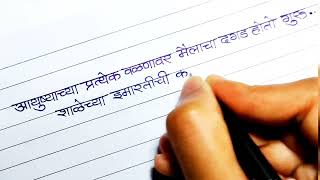 आयुष्याच्या प्रत्येक वळणावर मैलाचा दगड होतो गुरू..
शाळेच्या इमारतीची क